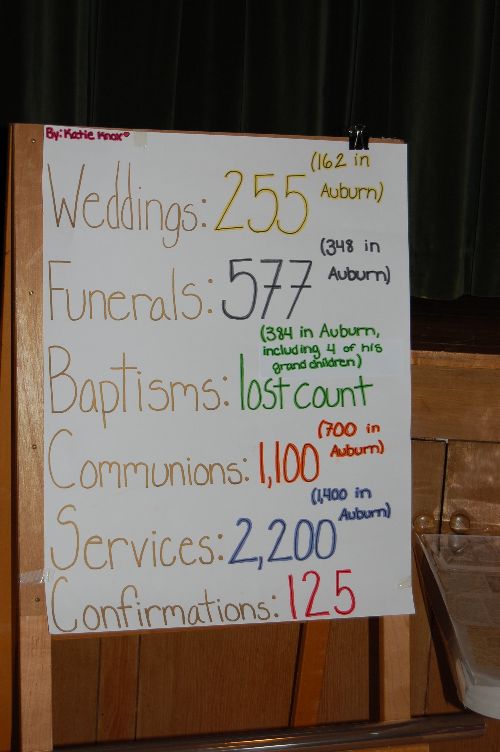 By: Katie Knox
Weddings: 255 (162 in
Auburn)
Funerals: 577 (348 in
Auburn)
Baptisms: lost count (384 in Auburn,
including 4 of his
grand children)
Communions: 1,100 (700 in
Auburn)
Services: 2,200 (1,400 in
Auburn)
Confirmations: 125